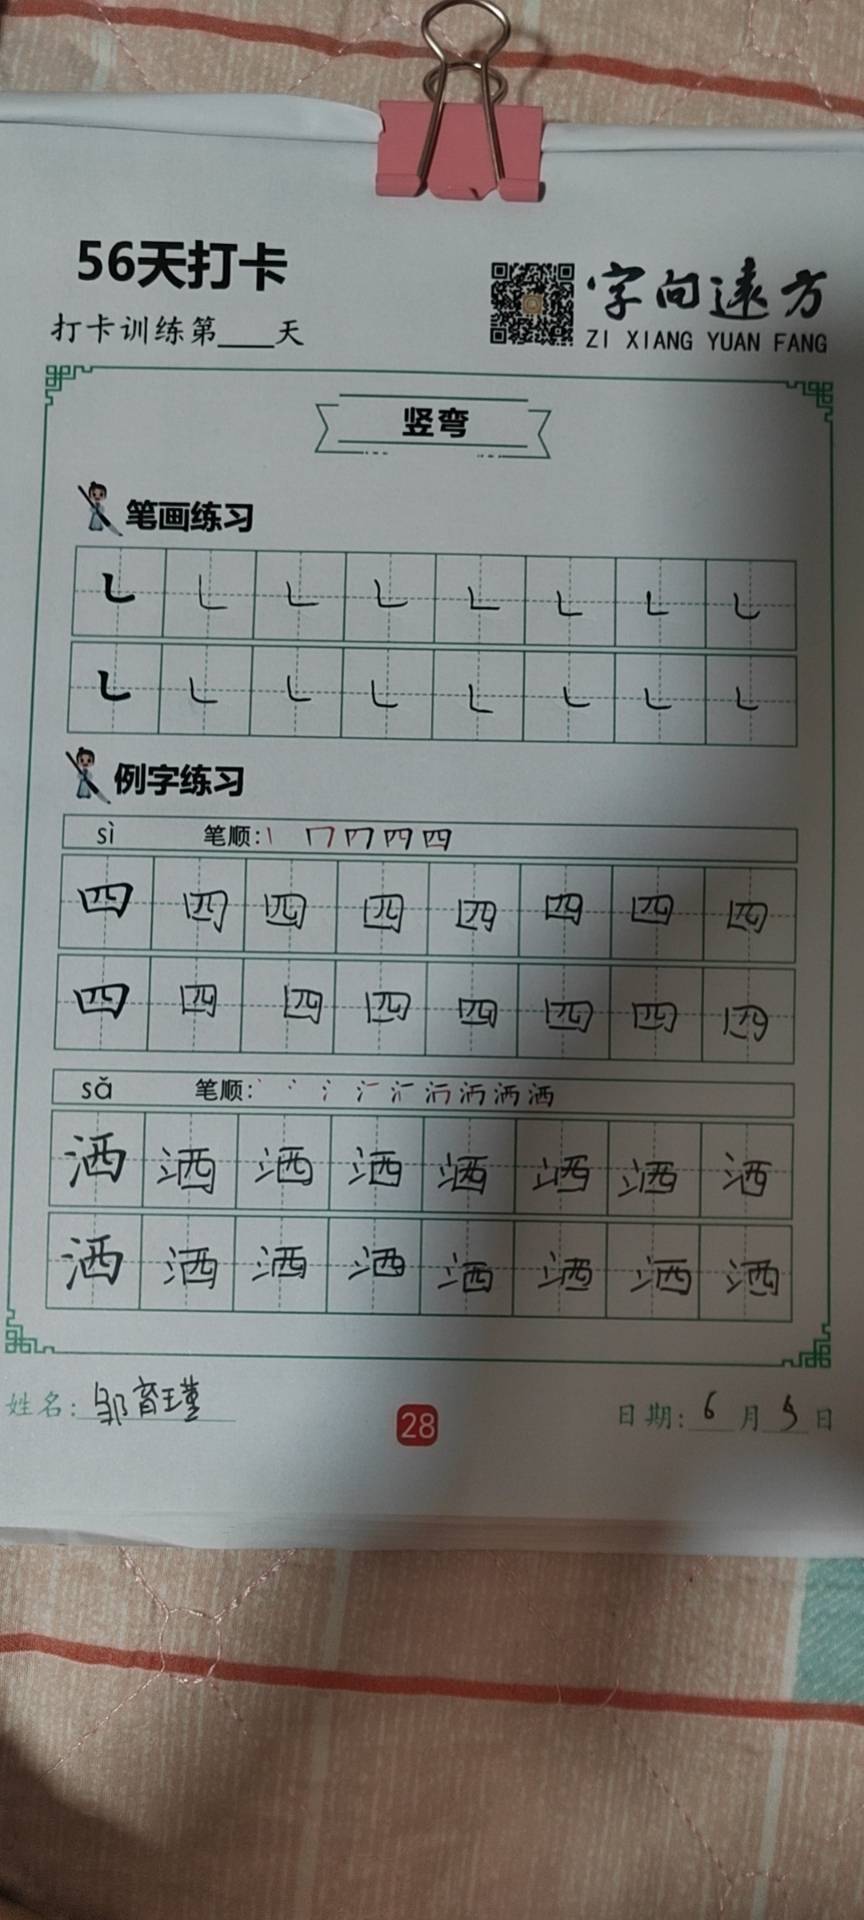 56天打卡
字向远方
打卡训练第____天
ZI XIANG YUAN FANG
竖弯
笔画练习
㇄ ㇄ ㇄ ㇄ ㇄ ㇄ ㇄ ㇄
㇄ ㇄ ㇄ ㇄ ㇄ ㇄ ㇄ ㇄
例字练习
sì 笔顺:
四 四 四 四 四 四 四 四
四 四 四 四 四 四 四 四
sǎ 笔顺:
洒 洒 洒 洒 洒 洒 洒 洒
洒 洒 洒 洒 洒 洒 洒 洒
姓名: 邹育瑾
28
日期: 6 月 5 日